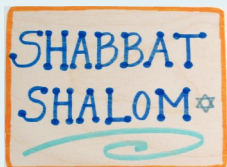 SHABBAT
SHALOM